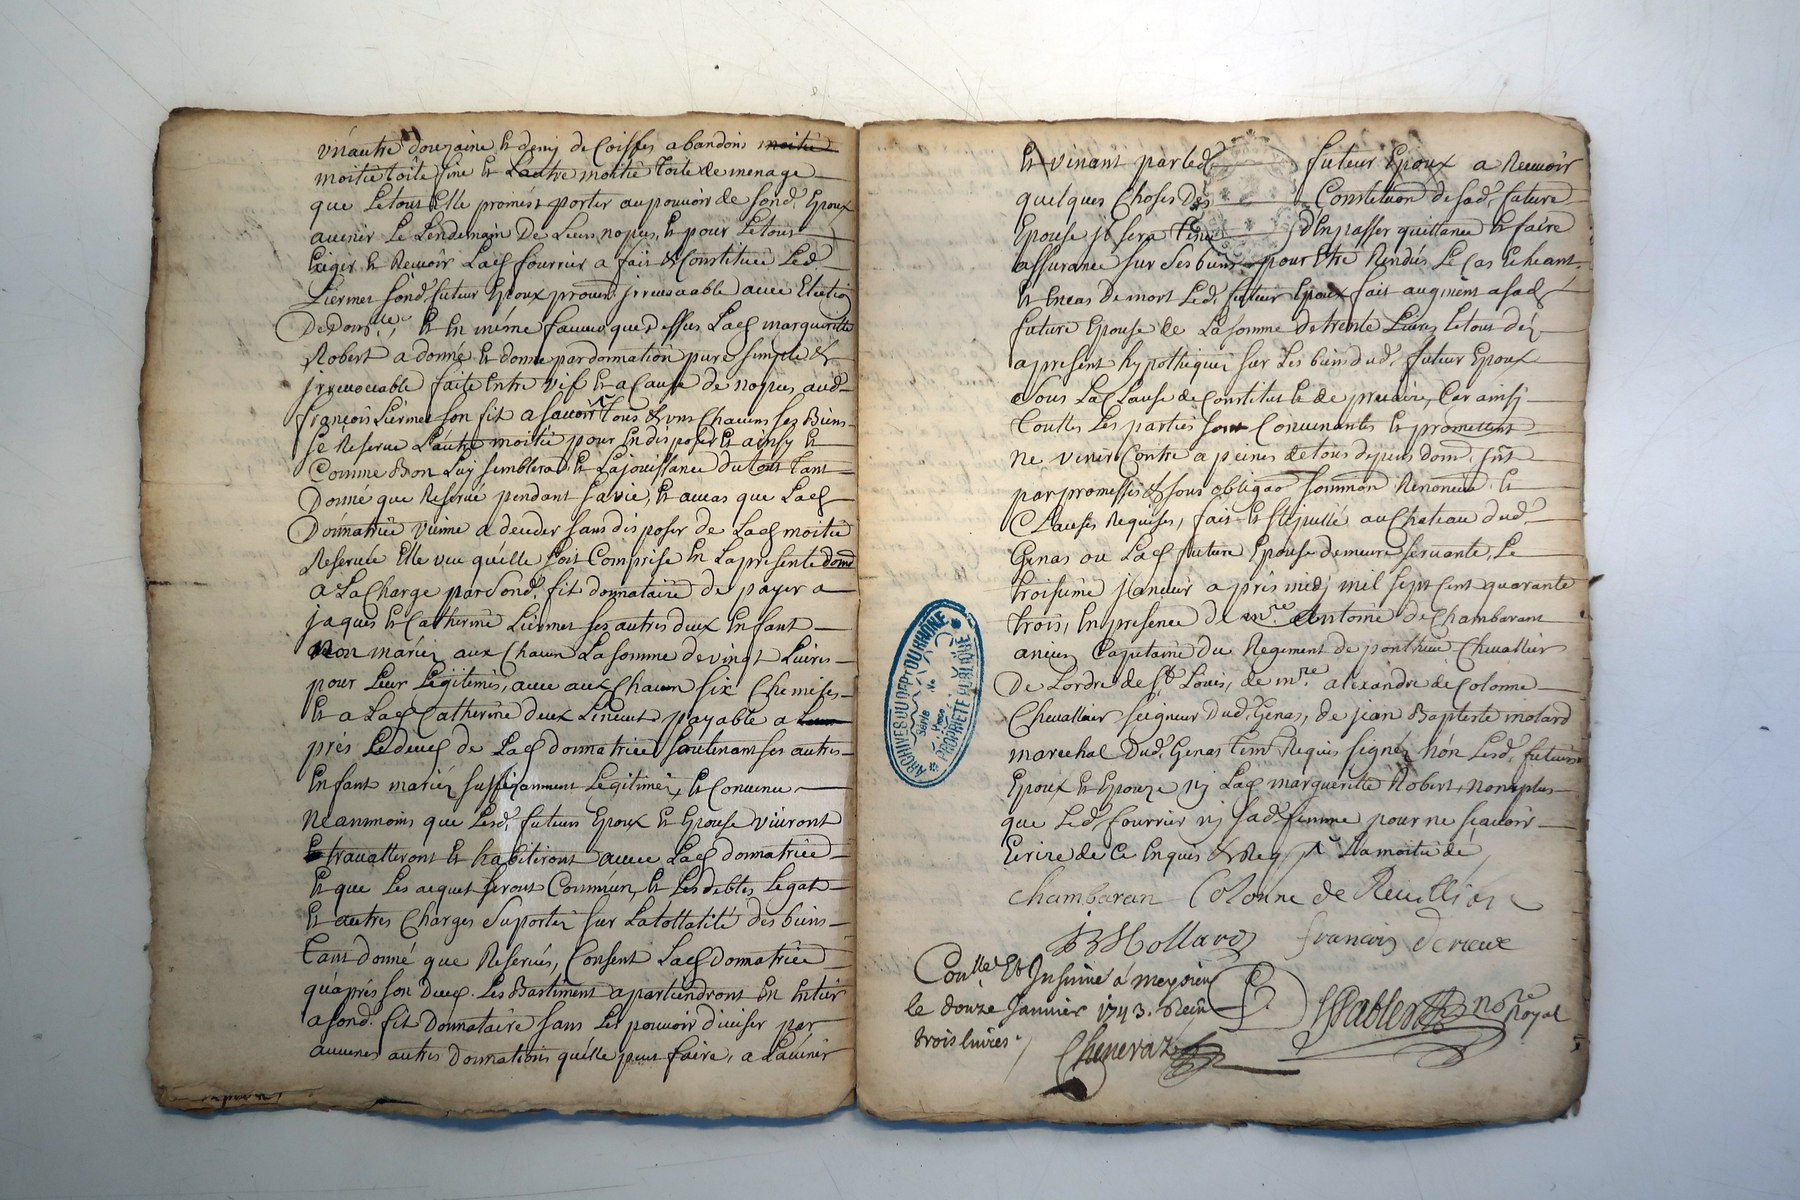 unautre douzaine Et demy de Coiffes abandons moitié
moitié toile fine Et Lautre moitié toile de menage
que Letout Elle promest porter aupouvoir de sond. Epoux
avenir Le Lendemain De Leurs nopces, Et pour Letout
Exiger Et Recevoir Lad fourrier a fait & Constitué Led.
Liermet sond. futur Epoux procur. jrrevocable avec Election
De Domlle, Et En même faveur que dessus Lad marguerite
Robert a donné Et donne par donnation pure simple &
jrrevocable faite Entre vif Et a Cause de nopces aud.
françois Liermet son fil a savoir tous & uns Chacuns ses Biens
se Reserve Lautre moitié pour En disposer Et ainsy Et
Comme Bon Luy semblera Et Lajouissance du tout tant
Donné que Reservé pendant sa vie, Et aucas que Lad
Donnatrice vienne a deceder sans disposer de Lad moitié
Reservée Elle veu quelle soit Comprise En Lapresente donn
a La Charge par Sond. fil donnataire de payer a
jaques Et Catherine Liermet ses autres deux Enfant
Non mariez aux Chacun La somme de vingt Livres
pour Leur Legitime, avec aux Chacun six Chemises
Et a Lad Catherine deux Linceuls payable a
prés Ledeces de Lad donnatrice soutenant ses autres
Enfant mariez suffisamment Legitimez, Et Convenu
Neanmoins que Lesd. futurs Epoux Et Epouse vivront
travailleront Et habiteront avec Lad donnatrice
Et que Les acquet seront Commun, Et Les debtes Legat
Et autres Charges Suportez sur Latottalité des biens
tant donné que Reservés, Consent Lad donnatrice
quaprés son Deces Les Bastiment apartiendront En Entier
asond. fil Donnataire sans Les pouvoir diviser par
aucunes autres Donnations quelle peut faire, a Lavenir
Et venant par led futur Epoux a Recevoir
quelques Choses Des Constitution de sad. future
Epouse jl sera tenu d'En passer quittance Et faire
assurance sur ses biens pour Etre Rendus Le Cas Echeant
Et Encas De mort Led. futur Epoux fait augment asad
future Epouse de La somme de trente Livres Letout dez
apresent hypothequez sur Les biens dud. futur Epoux
sous La Clause de Constitut Et de precaire, Car ainsj
touttes Les parties sont Convenantes Et promettent
ne venir Contre a peines de tous depens dom. jnt
par promesses & sous obligaõ sommon Renonceẽ Et
Clauses Requises, fait Et stipullé au Chateau dud.
Genas ou Lad future Epouse demeure servante, Le
troisiéme janvier a prés midj mil sept cent quarante
trois, En presence de mre. Antoine de Chambaran
ancien Capitaine du Regiment de ponthieu Chevallier
De Lordre de St. Louis, de mre alexandre de Colonne
Chevallier seigneur Dud. Genas, de jean Baptiste molard
marechal Dud. Genas tem. Requis signéz Non Lesd. futurs
Epoux Et Epouze nj Lad marguerite Robert, non plus
que Led. fourrier nj sad. femme pour ne sçavoir
Ecrire de Ce Enquis & Req. La moitié de
Chambaran Colonne de
JB Mollard francois derieux
Conllé Et Insinué á meyzieu
le douze Janvier 1743. Reçu
trois livres
Chenevaz
Pablet nore Royal
ARCHIVES DU DEPT DU RHÔNE
Série
No
Pièce
PROPRIÉTÉ PUBLIQUE